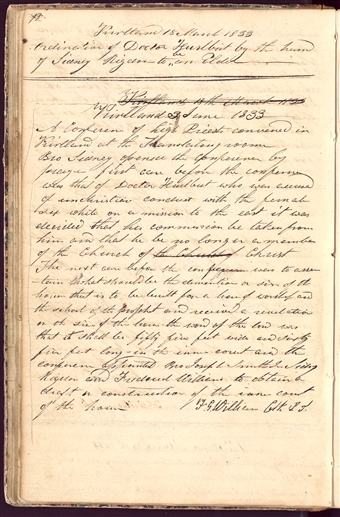 12
Kirtland 18 March 1833
Ordination of Doctor Hurlbut by the hand
of Sidney Rigdon to be an Elder
Kirtland 18th March 1833
Kirtland 3 June 1833
A Conference of high Priests convened in
Kirtland at the Translating room
Bro Sidney opened the Conference by
prayer first case before the conference
was that of Doctor Hurlbut who was accused
of unchristian conduct with the female
sex while on a mission to the east it was
decided that his commission be taken from
him and that he be no longer a member
of the Church of Christ
The next case before the conference was to ascer
tain what should be the dimention or size of the
house that is to be built for a house of worship and
the school of the prophets and received a revelation
on the size of the house the word of the Lord was
that it shall be fifty five feet wide and sixty
five feet long in the inner court and the
conference appointed Bro Joseph Smith Jr Sidney
Rigdon and Frederick Williams to obtain a
draft or construction of the inner court
of the house F G Williams Clk P T